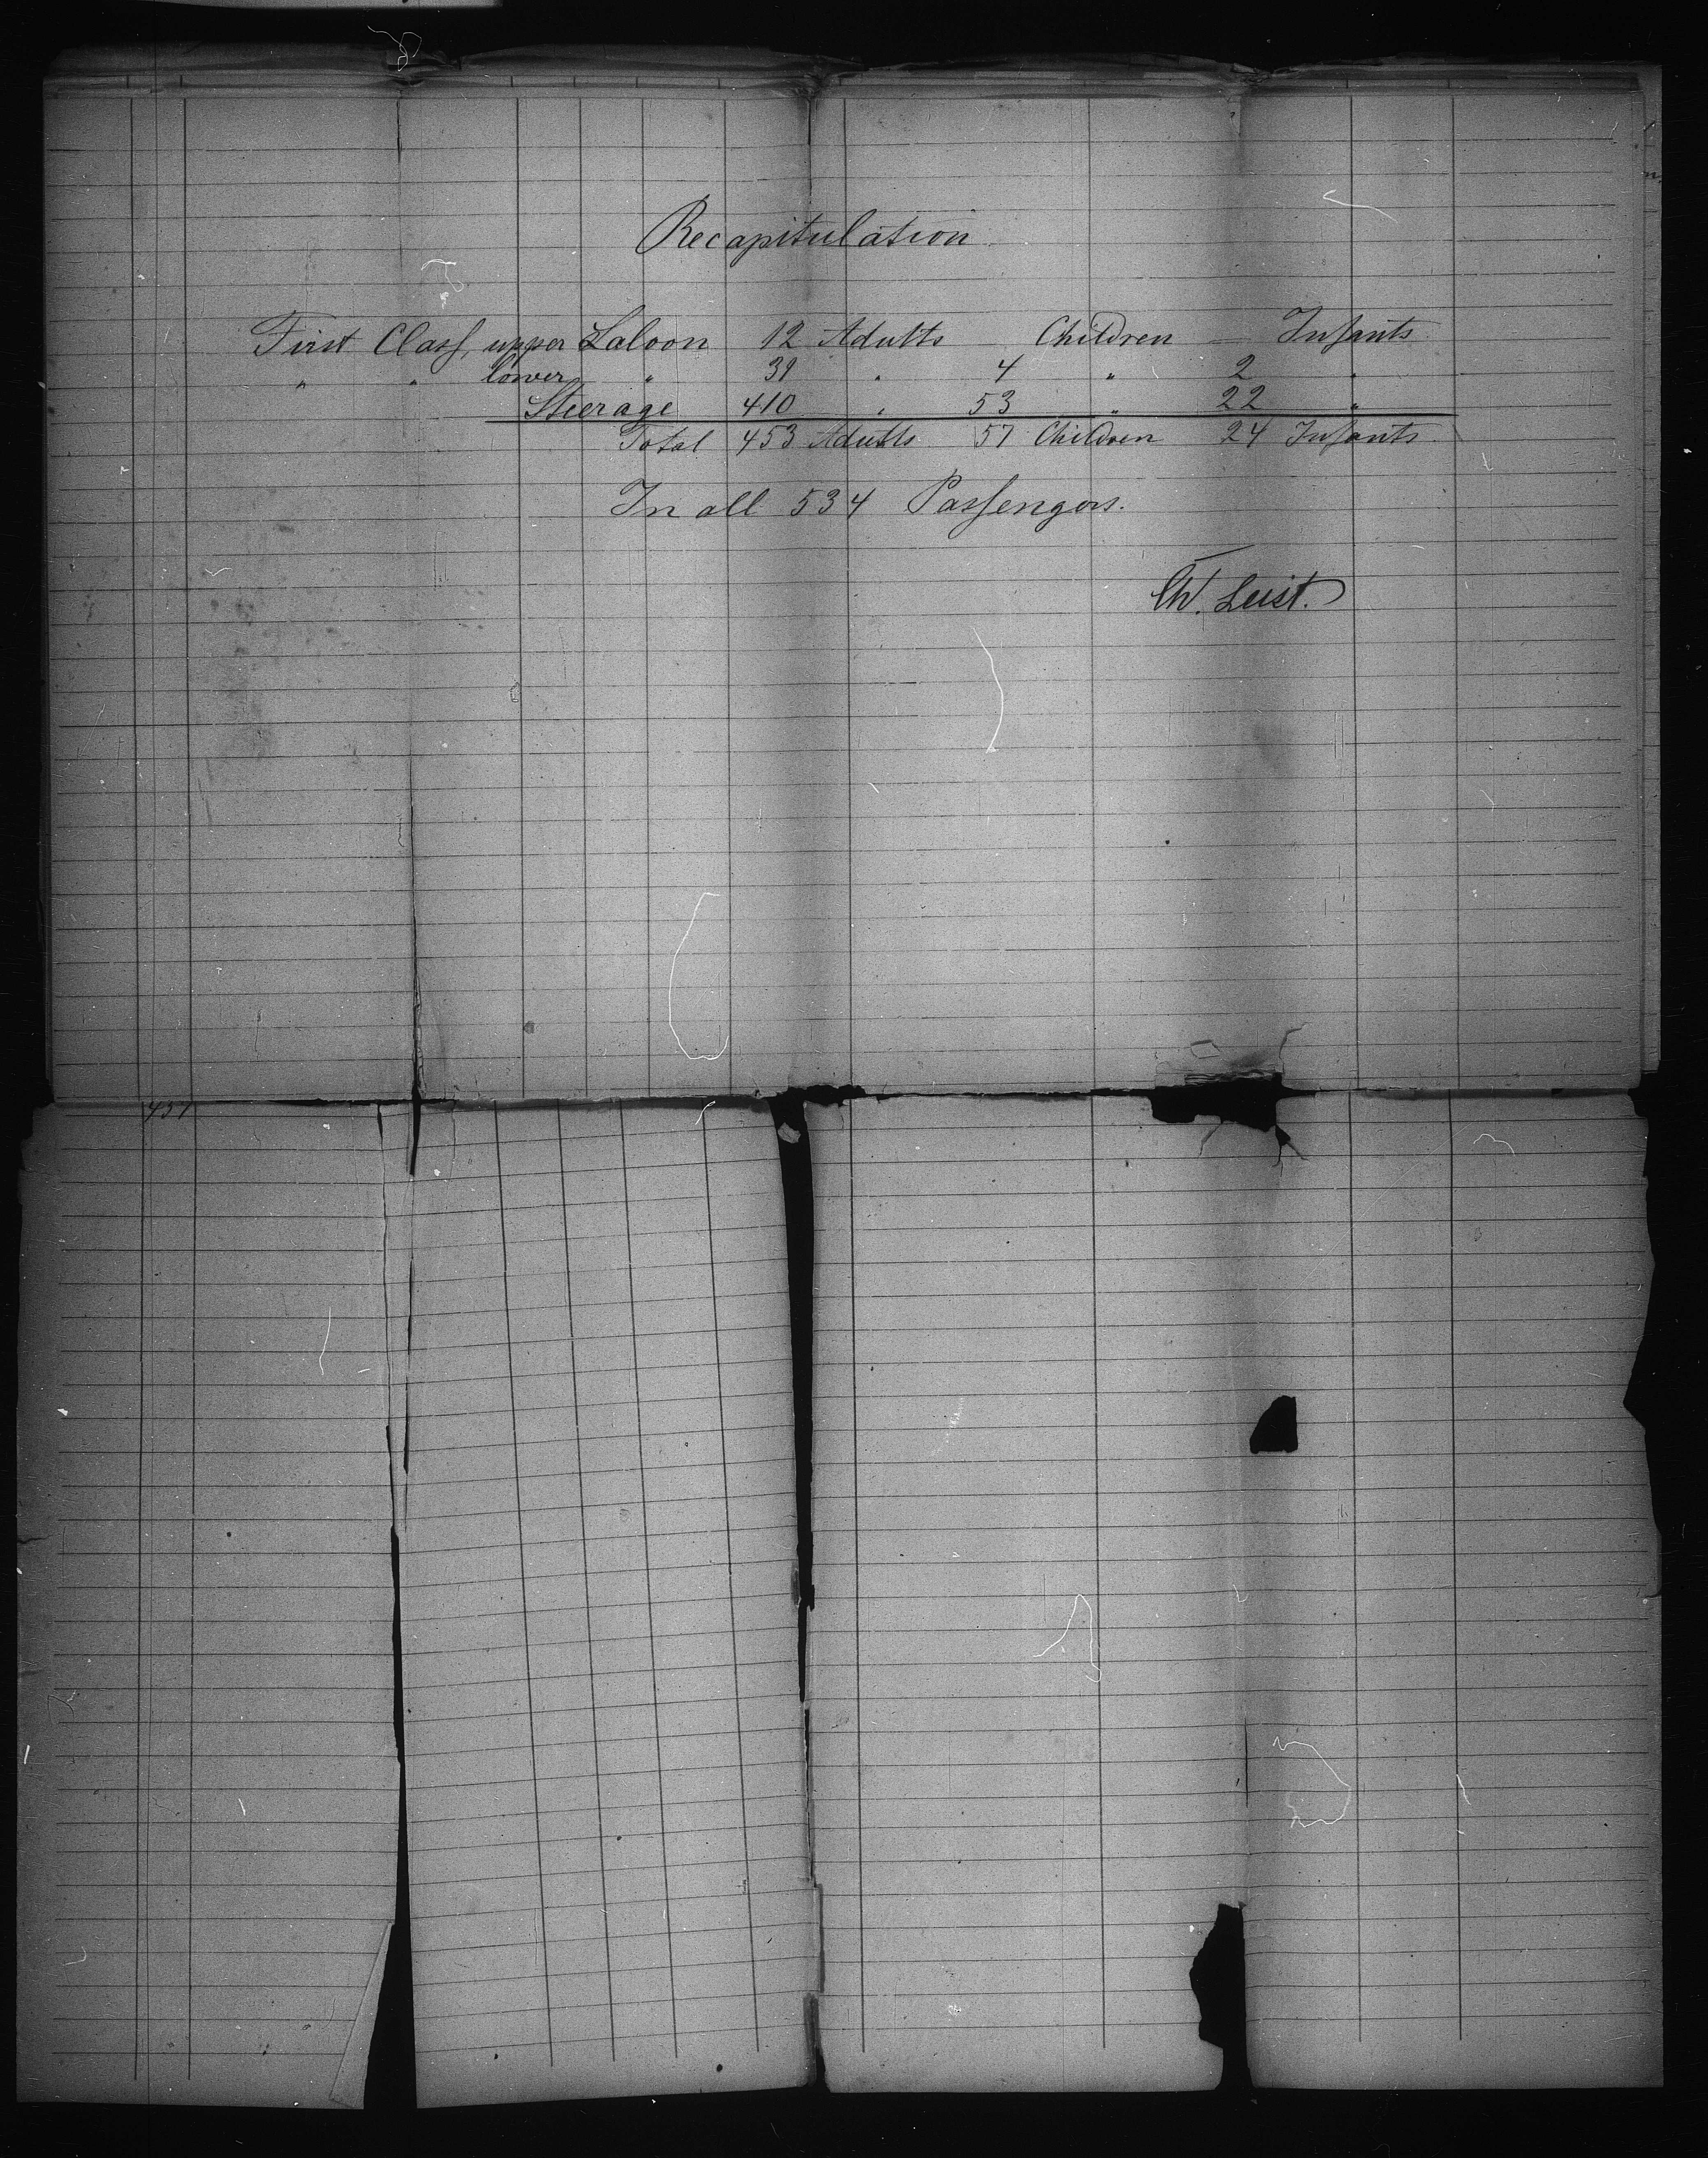 Recapitulation
First Class, upper Saloon 12 Adults — Children — Infants
" " lower " 31 " 4 " 2 "
Steerage 410 " 53 " 22 "
Total 453 Adults 57 Children 24 Infants
In all 534 Passengers.
Ch. Leist.